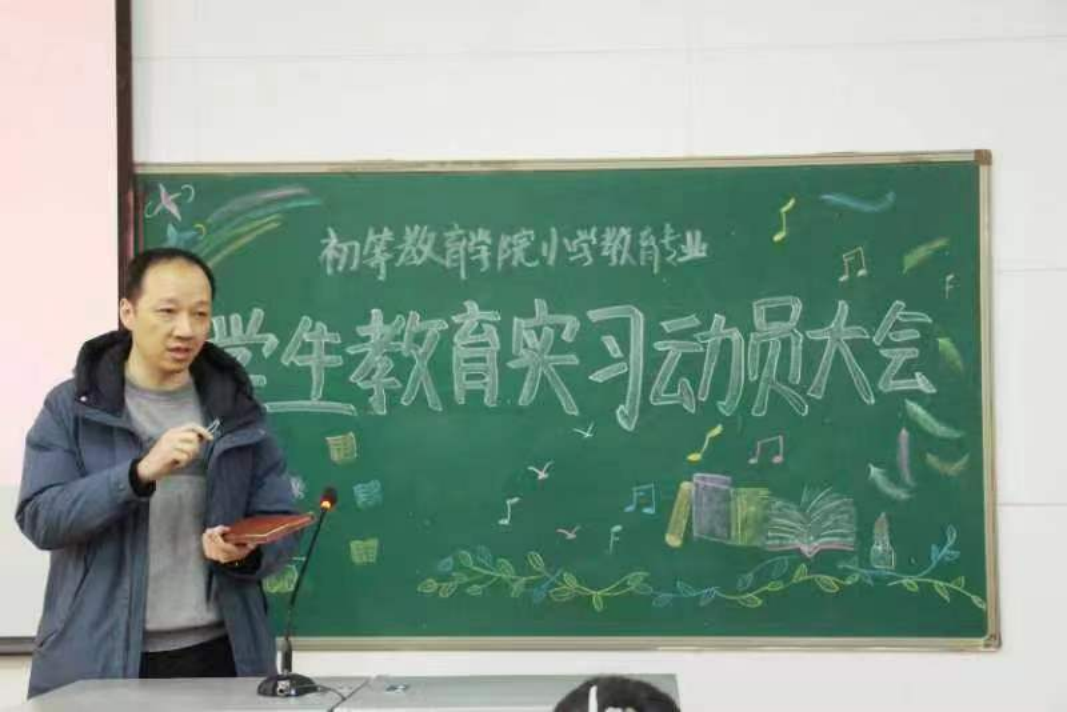 初等教育学院小学教育专业
学生教育实习动员大会